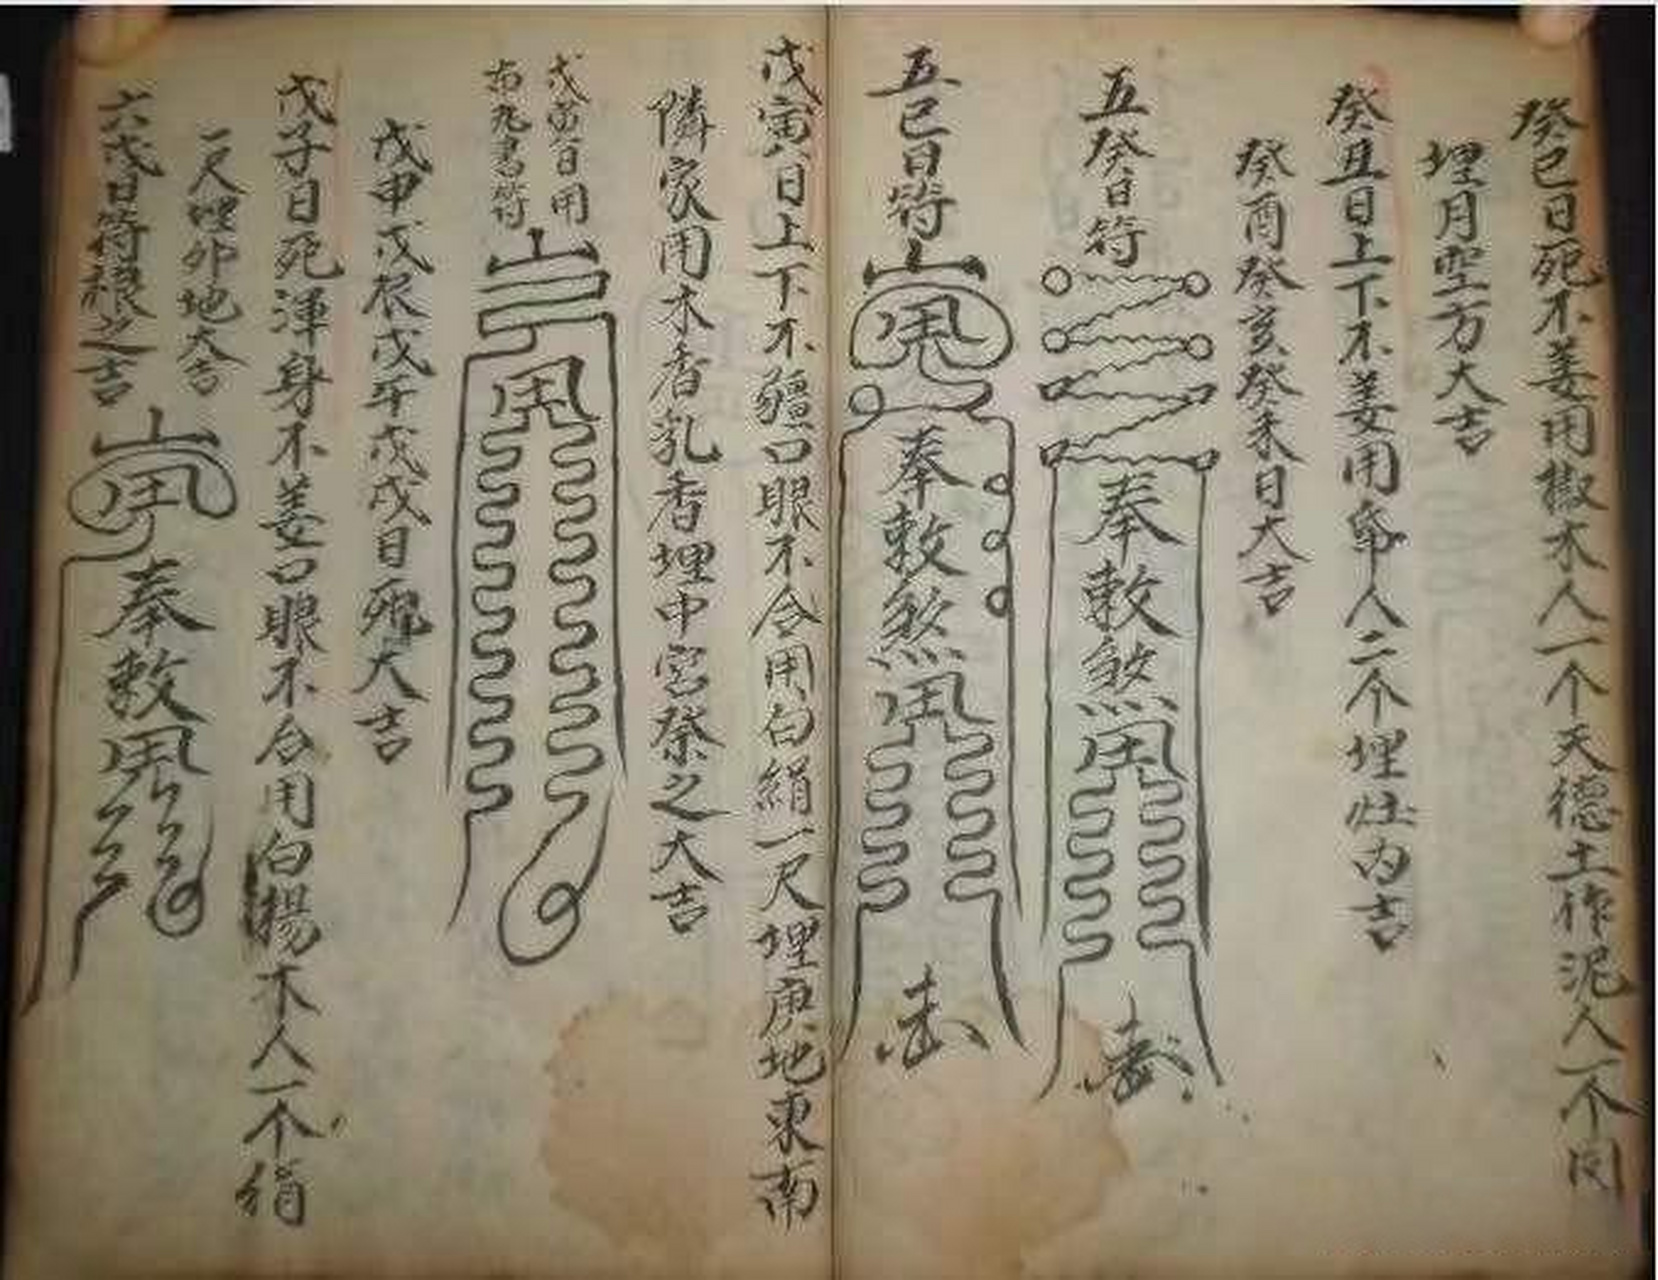 癸巳日死不姜用椒木人一个天德土作泥人一个同
埋月空方大吉
癸丑日上下不姜用帛人二个埋灶内吉
癸酉癸亥癸未日大吉
五癸日符
奉敕煞
五巳日符
奉敕煞
戊寅日上下不殭口眼不合用白絹一尺埋庚地東南
隣家用木香乳香埋中宮祭之大吉
戊寅日用
書符
戊申戊辰戊午戊戌日死大吉
戊子日死渾身不姜口眼不合用白楊木人一个絹
一尺埋卯地大吉
六戊日符根之吉
奉敕